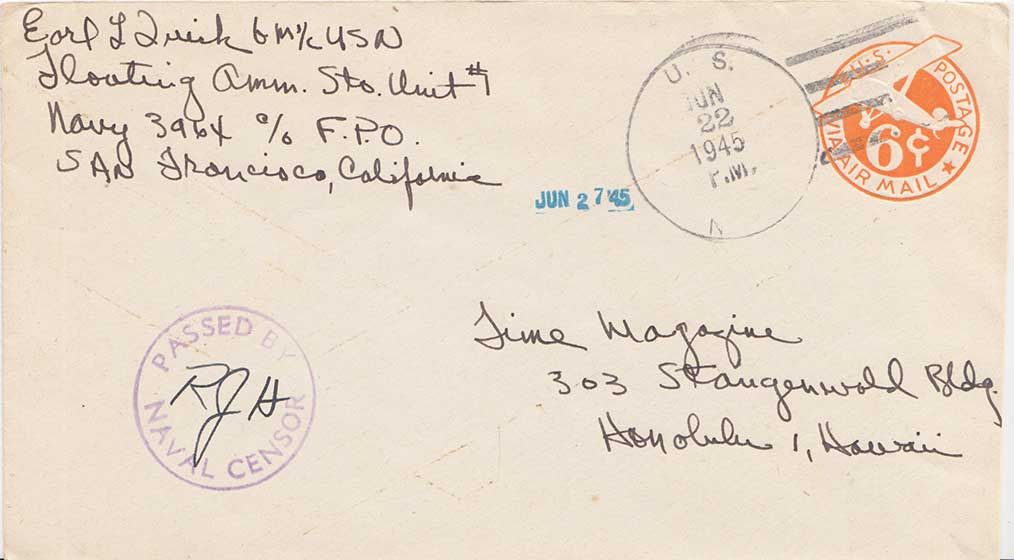 Earl L Quick GM1/c USN
Floating Amm. Sto. Unit #1
Navy 3964 c/o F.P.O.
SAN Francisco, California
U. S.
JUN
22
1945
P.M.
N
U.S. POSTAGE
6¢
VIA AIR MAIL
JUN 27 '45
PASSED BY
RJH
NAVAL CENSOR
Time Magazine
303 Stangenwald Bldg.
Honolulu 1, Hawaii